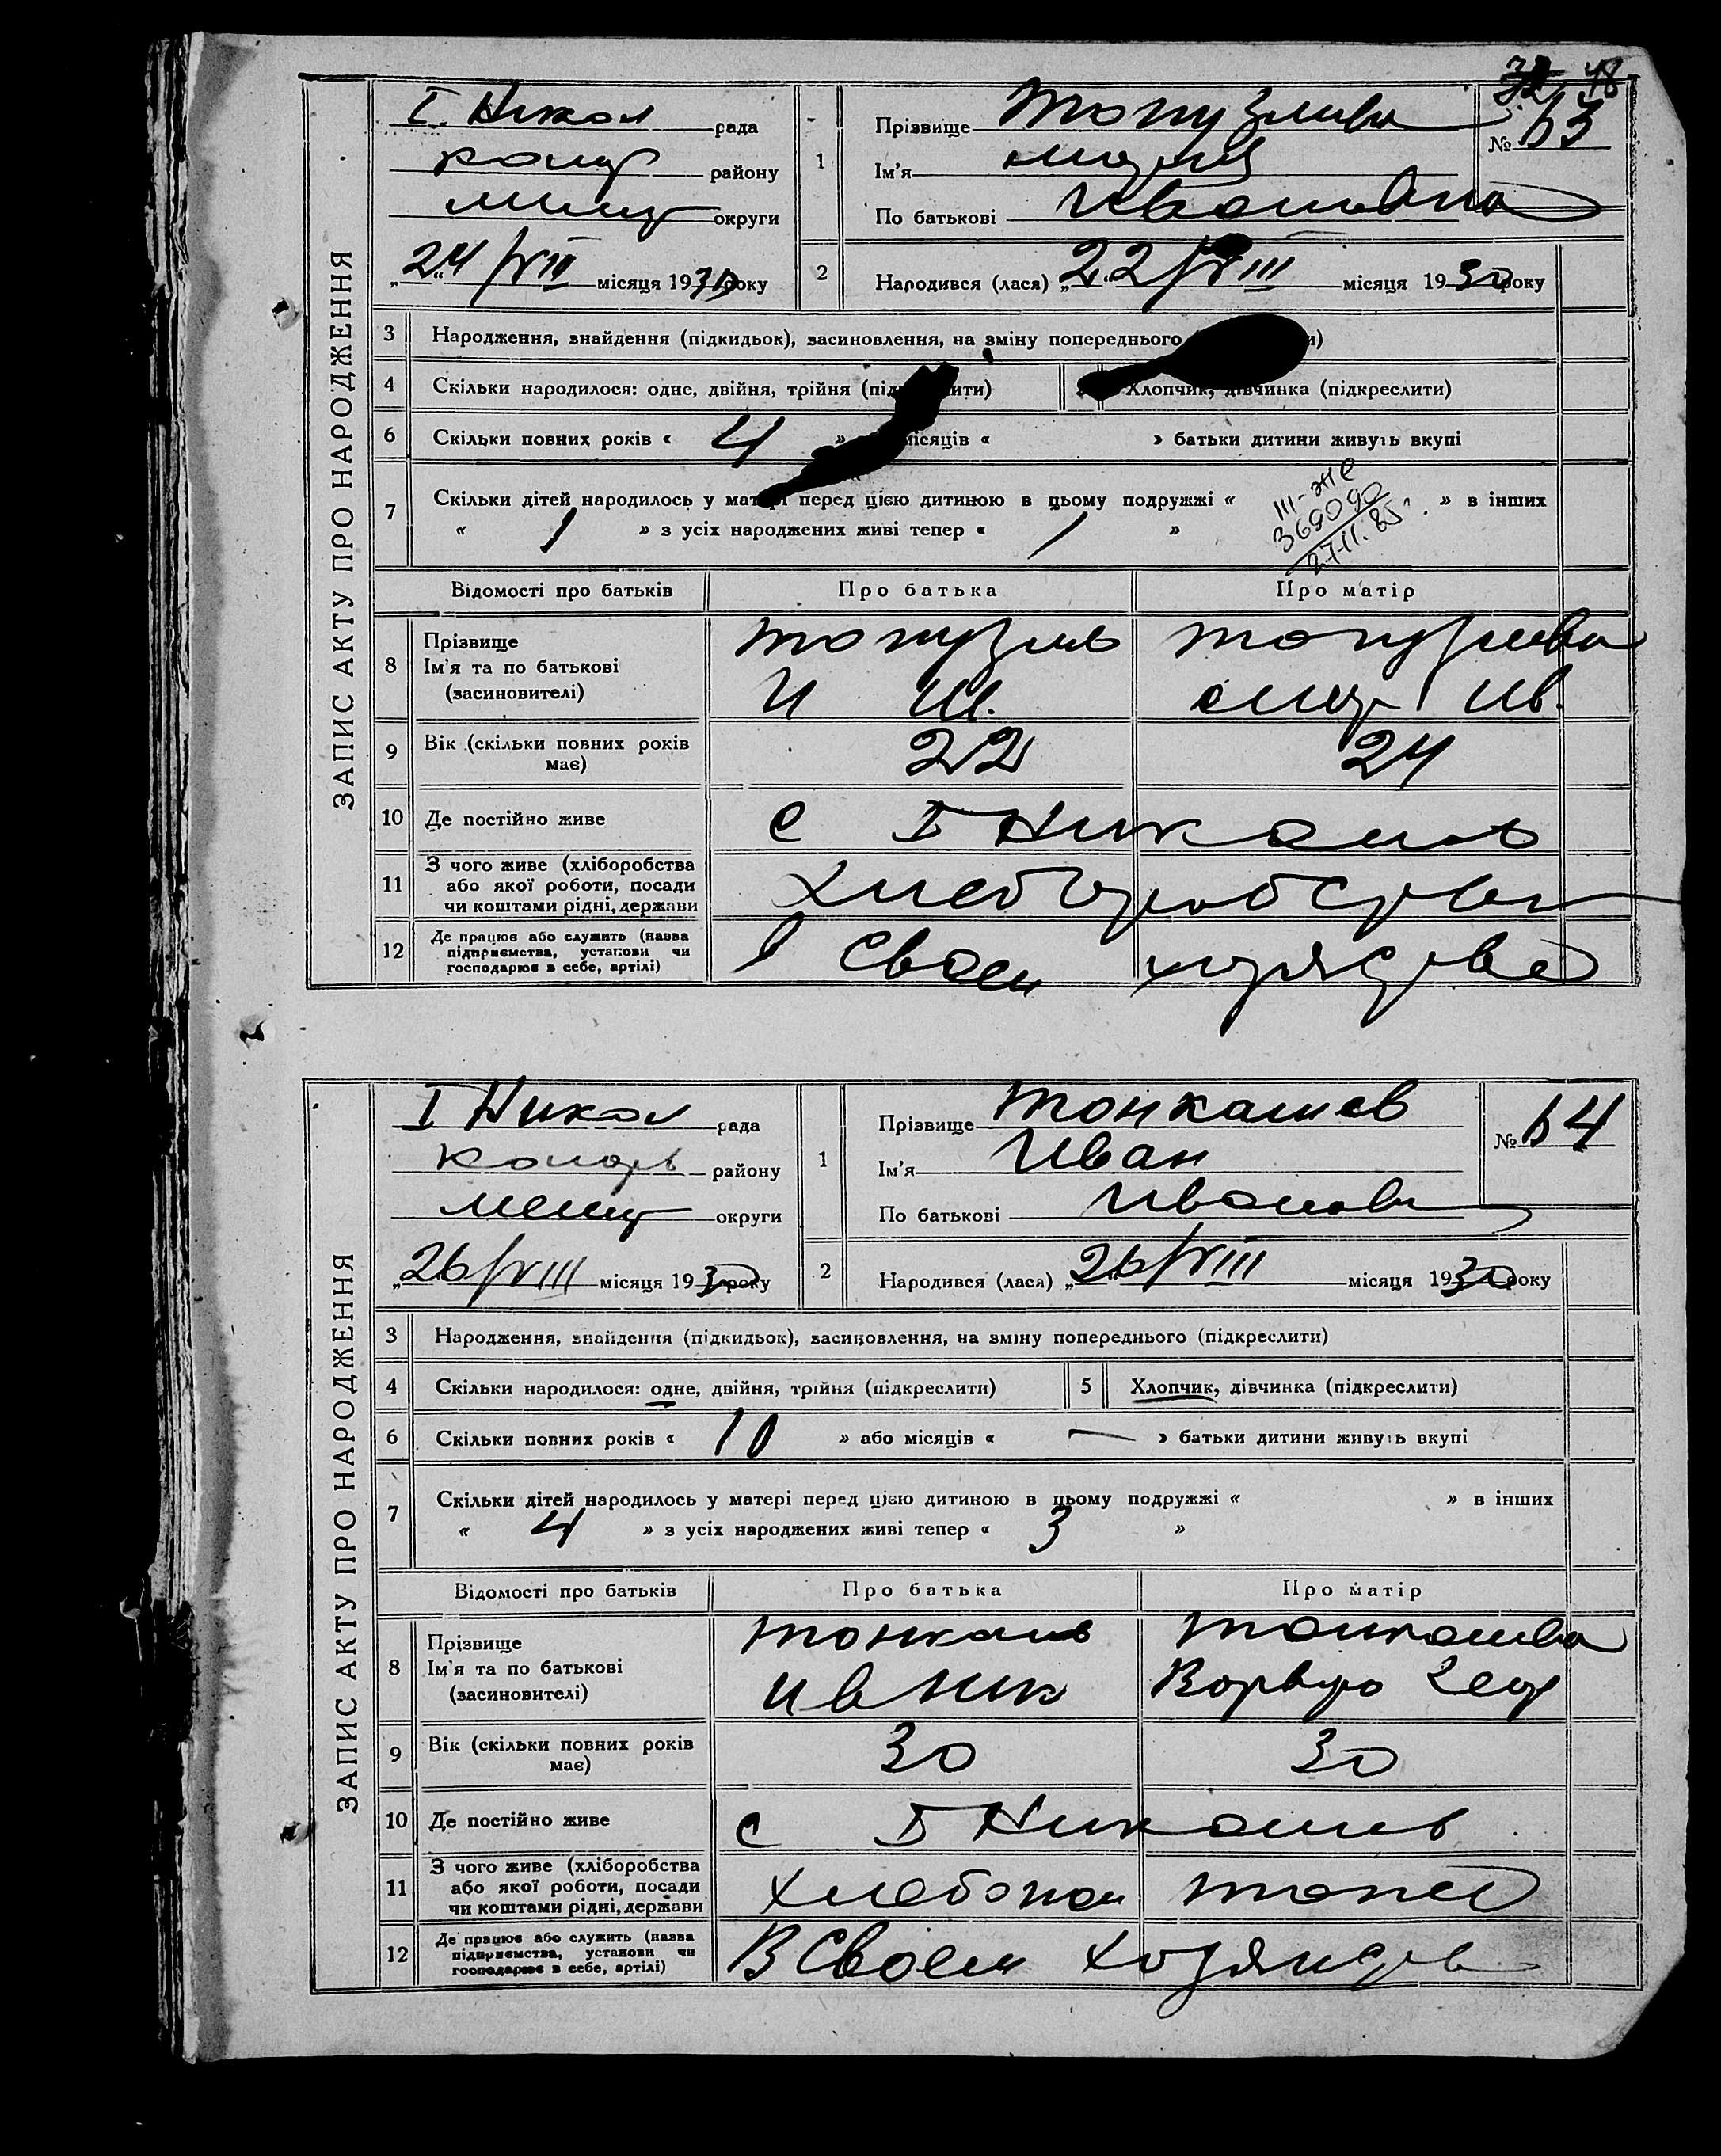 32 48
ЗАПИС АКТУ ПРО НАРОДЖЕННЯ
I. Никол рада
району
округи
„24/VIII місяця 1930 року
1
Прізвище Топузлиева
Ім'я Мария
По батькові Ивановна
№ 63
2
Народився (лася) „22/VIII місяця 1930 року
3 Народження, знайдення (підкидьок), засиновлення, на зміну попереднього
4 Скільки народилося: одне, двійня, трійня
Хлопчик, дівчинка (підкреслити)
6 Скільки повних років « 4 » місяців « » батьки дитини живуть вкупі
7 Скільки дітей народилось у матері перед цією дитиною в цьому подружжі « » в інших
« 1 » з усіх народжених живі тепер « 1 »
III-ЖС
369090
27.11.85г.
Відомості про батьків Про батька Про матір
8 Прізвище
Ім'я та по батькові
(засиновителі)
И Ив.
9 Вік (скільки повних років має) 22 24
10 Де постійно живе с I Николь
11 З чого живе (хліборобства або якої роботи, посади чи коштами рідні, держави
12 Де працює або служить (назва підприємства, установи чи господарює в себе, артілі) в своем
ЗАПИС АКТУ ПРО НАРОДЖЕННЯ
I Никол рада
району
округи
„26/VIII місяця 1930 року
1
Прізвище Тонкашев
Ім'я Иван
По батькові Иванови
№ 64
2
Народився (лася) „26/VIII місяця 1930 року
3 Народження, знайдення (підкидьок), засиновлення, на зміну попереднього (підкреслити)
4 Скільки народилося: одне, двійня, трійня (підкреслити)
5 Хлопчик, дівчинка (підкреслити)
6 Скільки повних років « 10 » або місяців « — » батьки дитини живуть вкупі
7 Скільки дітей народилось у матері перед цією дитиною в цьому подружжі « » в інших
« 4 » з усіх народжених живі тепер « 3 »
Відомості про батьків Про батька Про матір
8 Прізвище
Ім'я та по батькові
(засиновителі)
Ив Ник
9 Вік (скільки повних років має) 30 30
10 Де постійно живе с I Николь
11 З чого живе (хліборобства або якої роботи, посади чи коштами рідні, держави
12 Де працює або служить (назва підприємства, установи чи господарює в себе, артілі) В своем